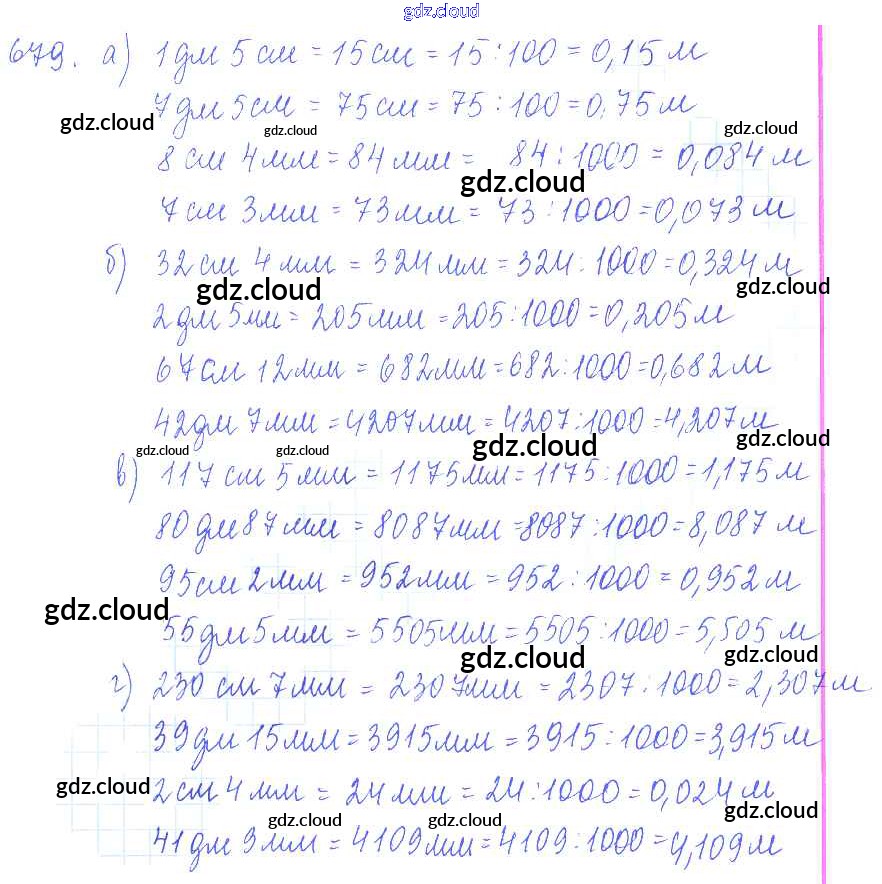 gdz.cloud
679. а) 1 дм 5 см = 15 см = 15 : 100 = 0,15 м
7 дм 5 см = 75 см = 75 : 100 = 0,75 м
gdz.cloud gdz.cloud gdz.cloud
8 см 4 мм = 84 мм = 84 : 1000 = 0,084 м
gdz.cloud
7 см 3 мм = 73 мм = 73 : 1000 = 0,073 м
б) 32 см 4 мм = 324 мм = 324 : 1000 = 0,324 м
gdz.cloud gdz.cloud
2 дм 5 мм = 205 мм = 205 : 1000 = 0,205 м
67 см 12 мм = 682 мм = 682 : 1000 = 0,682 м
42 дм 7 мм = 4207 мм = 4207 : 1000 = 4,207 м
gdz.cloud gdz.cloud gdz.cloud gdz.cloud
в) 117 см 5 мм = 1175 мм = 1175 : 1000 = 1,175 м
80 дм 87 мм = 8087 мм = 8087 : 1000 = 8,087 м
95 см 2 мм = 952 мм = 952 : 1000 = 0,952 м
gdz.cloud
55 дм 5 мм = 5505 мм = 5505 : 1000 = 5,505 м
gdz.cloud gdz.cloud
г) 230 см 7 мм = 2307 мм = 2307 : 1000 = 2,307 м
39 дм 15 мм = 3915 мм = 3915 : 1000 = 3,915 м
gdz.cloud
2 см 4 мм = 24 мм = 24 : 1000 = 0,024 м
gdz.cloud gdz.cloud gdz.cloud
41 дм 9 мм = 4109 мм = 4109 : 1000 = 4,109 м